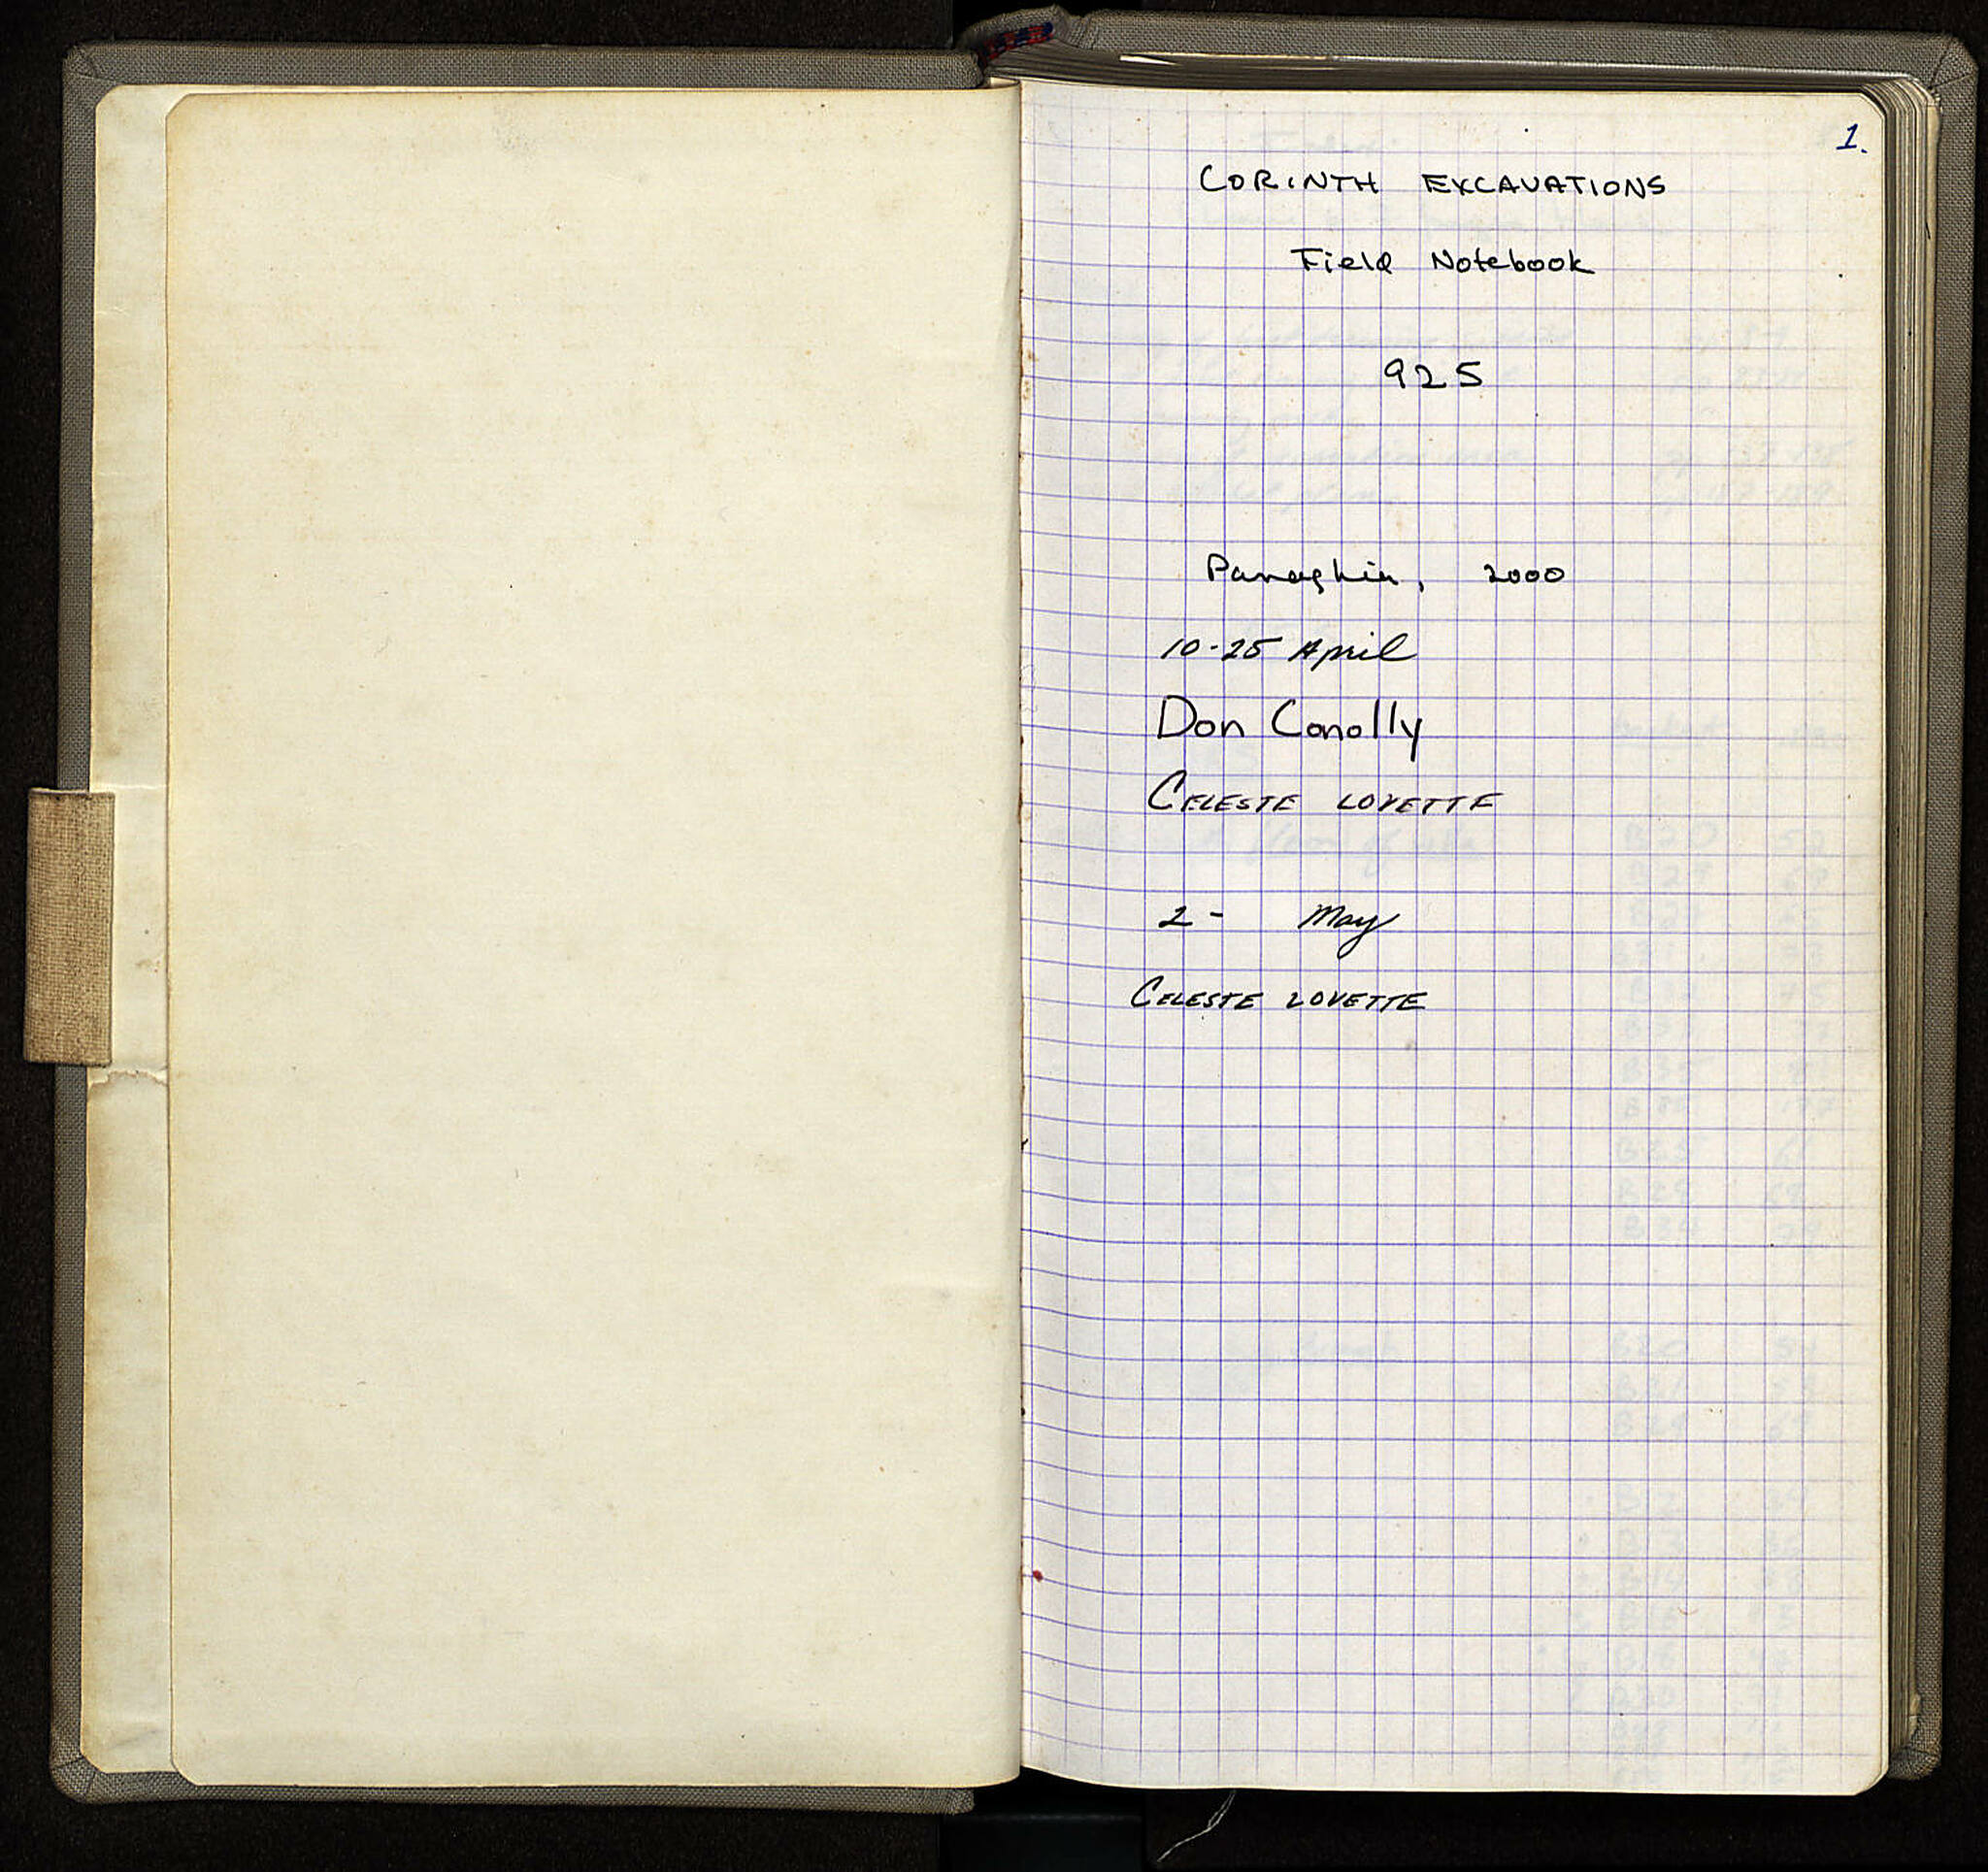 1.
CORINTH EXCAVATIONS
Field Notebook
925
Panaghia, 2000
10-25 April
Don Conolly
CELESTE LOVETTE
2 - May
CELESTE LOVETTE